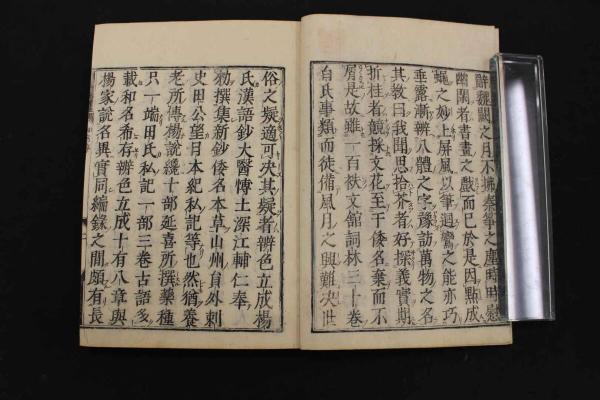 辭魏闕之月不拂秦箏之塵時時慰
幽閑者書畫之戲而已於是因點成
蠅之妙上屏風以筆迴鸞之能亦巧
垂露漸辨八體之字豫訪萬物之名
其教曰我聞思拾芥者好探義實期
折桂者競採文花至于倭名棄而不
屑是故雖一百袟文館詞林三十卷
白氏事類而徒備風月之興難决世
俗之疑適可决其疑者辨色立成楊
氏漢語鈔大醫博士深江輔仁奉
勑撰集新鈔倭名本草山州員外刺
史田公望日本紀私記等也然猶養
老所傳楊說纔十部延喜所撰藥種
只一端田氏私記一部三卷古語多
載和名希存辨色立成十有八章與
楊家說名異實同編錄之間頗有長